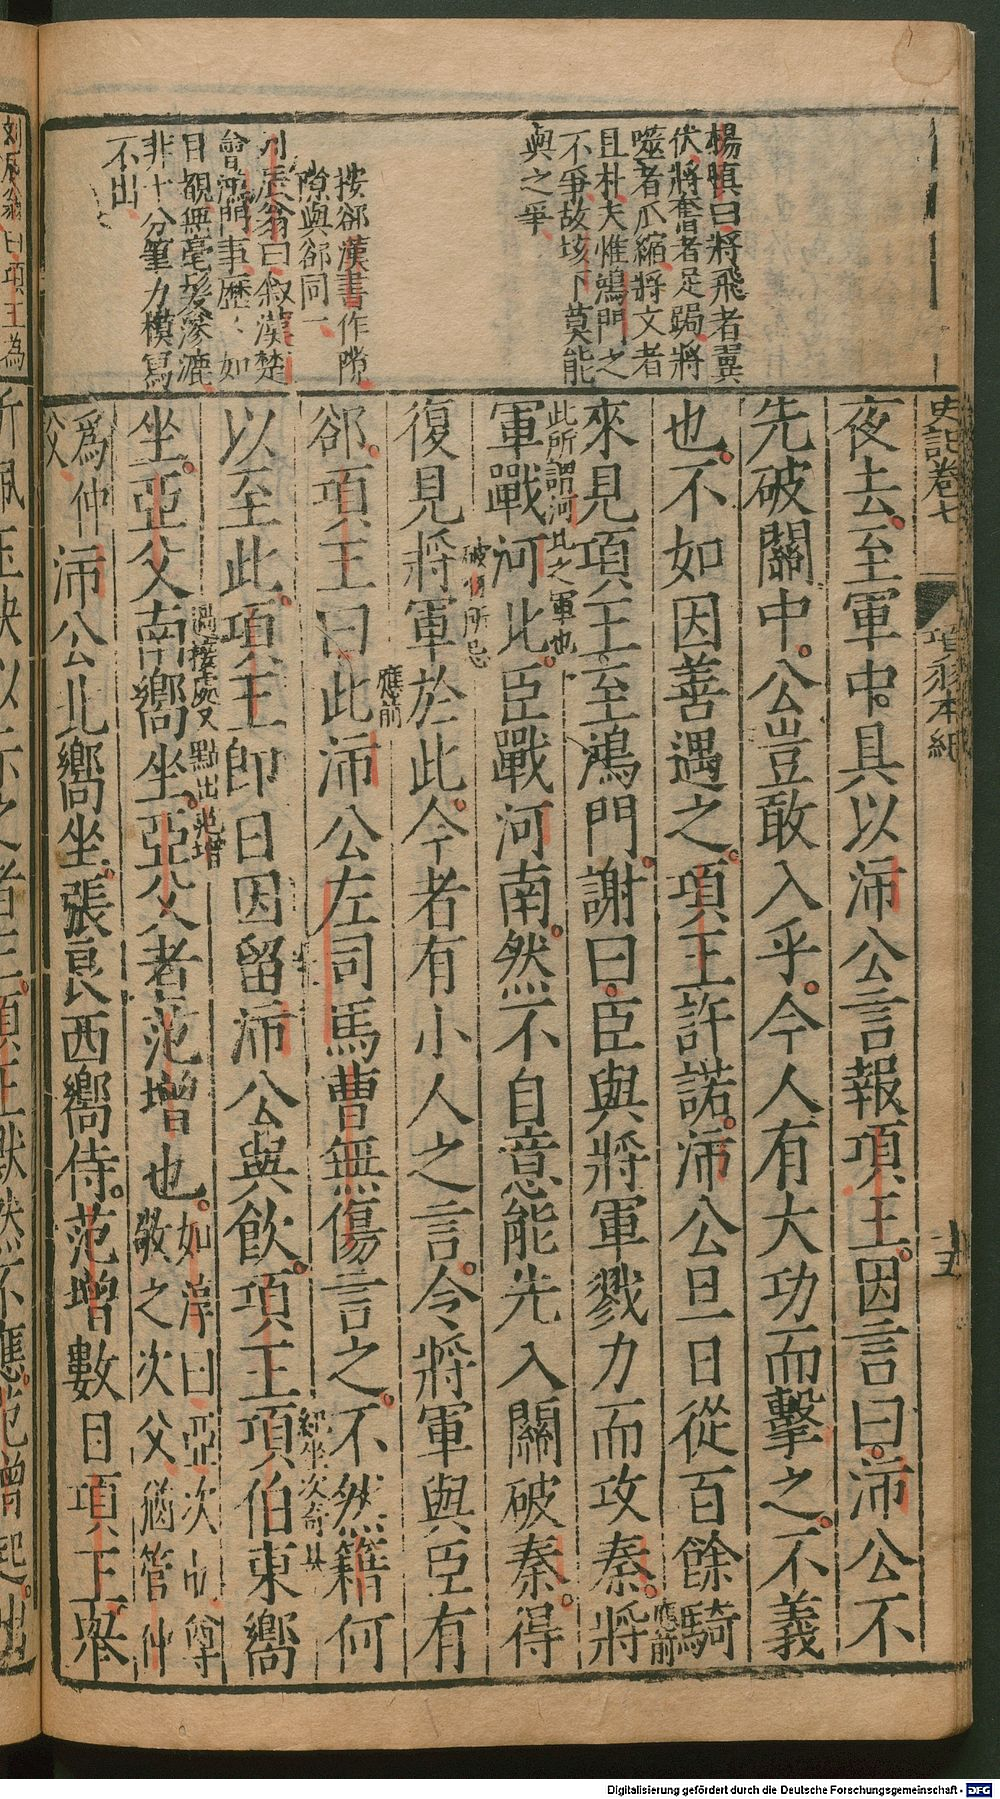 楊慎曰將飛者翼
伏將奮者足跼將
噬者爪縮將文者
且朴夫惟鴻門之
不爭故垓下莫能
與之爭
按郤漢書作隙
隙與郤同
劉辰翁曰敘漢楚
會鴻門事歷、如
目覩無毫髮滲漉
非十分筆力模寫
不出
史記卷七
項羽本紀
十五
夜去。至軍中。具以沛公言報項王。因言曰。沛公不
先破關中。公豈敢入乎。今人有大功而擊之。不義
也。不如因善遇之。項王許諾。沛公旦日從百餘騎
應前
來見項王至鴻門。謝曰。臣與將軍戮力而攻秦。將
此所謂河北之軍也
軍戰河北。臣戰河南。然不自意能先入關破秦。得
破項所忌
復見將軍於此。今者有小人之言。令將軍與臣有
應前
郤。項王曰此沛公左司馬曹無傷言之。不然籍何
敘坐次奇
以至此。項王即日因留沛公與飲。項王項伯東嚮
過接處又點出范增
坐。亞父南嚮坐。亞父者范增也。如淳曰亞次也尊
敬之次父猶管仲
爲仲父
沛公北嚮坐。張良西嚮侍。范增數目項王。舉
所佩玉玦以示之者三。項王默然不應。范增起。出
劉辰翁曰項王為
Digitalisierung gefördert durch die Deutsche Forschungsgemeinschaft - DFG